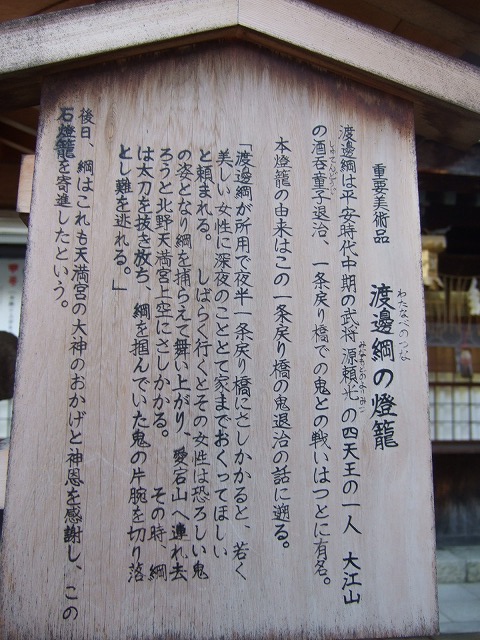 重要美術品
渡邊綱の燈籠
わたなべのつな
渡邊綱は平安時代中期の武将 源頼光の四天王の一人 大江山
みなもとよりみつ
の酒呑童子退治、一条戻り橋での鬼との戦いはつとに有名。
しゅてんどうじ
本燈籠の由来はこの一条戻り橋の鬼退治の話に遡る。
「渡邊綱が所用で夜半一条戻り橋にさしかかると、若く
美しい女性に深夜のこととて家までおくってほしい
と頼まれる。 しばらく行くとその女性は恐ろしい鬼
の姿となり綱を捕らえて舞い上がり、愛宕山へ連れ去
ろうと北野天満宮上空にさしかかる。 その時、綱
は太刀を抜き放ち、綱を掴んでいた鬼の片腕を切り落
とし難を逃れる。」
後日、綱はこれも天満宮の大神のおかげと神恩を感謝し、この
石燈籠を寄進したという。